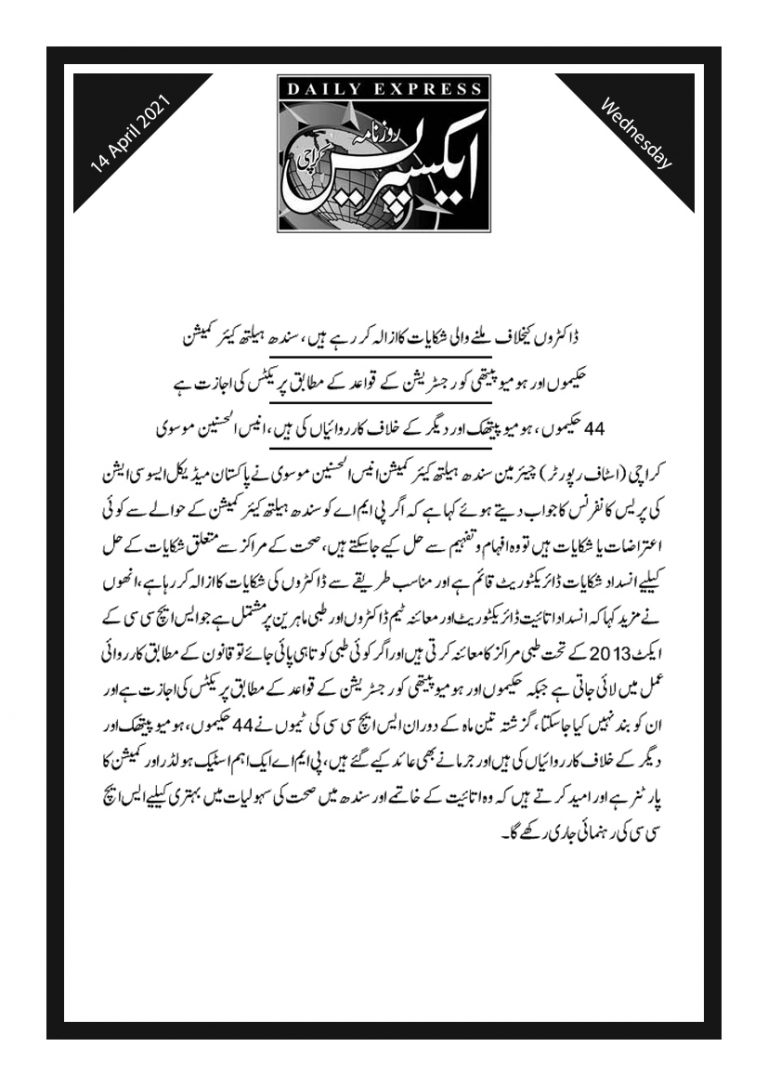 14 April 2021
DAILY EXPRESS
Wednesday
روزنامہ
ایکسپریس
کراچی
ڈاکٹروں کیخلاف ملنے والی شکایات کا ازالہ کر رہے ہیں، سندھ ہیلتھ کیئر کمیشن
حکیموں اور ہومیوپیتھی کو رجسٹریشن کے قواعد کے مطابق پریکٹس کی اجازت ہے
44 حکیموں، ہومیو پیتھک اور دیگر کے خلاف کارروائیاں کی ہیں، انیس الحسنین موسوی
کراچی (اسٹاف رپورٹر) چیئرمین سندھ ہیلتھ کیئر کمیشن انیس الحسنین موسوی نے پاکستان میڈیکل ایسوسی ایشن
کی پریس کانفرنس کا جواب دیتے ہوئے کہا ہے کہ اگر پی ایم اے کو سندھ ہیلتھ کیئر کمیشن کے حوالے سے کوئی
اعتراضات یا شکایات ہیں تو وہ افہام و تفہیم سے حل کیے جاسکتے ہیں، صحت کے مراکز سے متعلق شکایات کے حل
کیلیے انسداد شکایات ڈائریکٹوریٹ قائم ہے اور مناسب طریقے سے ڈاکٹروں کی شکایات کا ازالہ کر رہا ہے، انھوں
نے مزید کہا کہ انسداد اتائیت ڈائریکٹوریٹ اور معائنہ ٹیم ڈاکٹروں اور طبی ماہرین پر مشتمل ہے جو ایس ایچ سی سی کے
ایکٹ 2013 کے تحت طبی مراکز کا معائنہ کرتی ہیں اور اگر کوئی طبی کوتاہی پائی جائے تو قانون کے مطابق کارروائی
عمل میں لائی جاتی ہے جبکہ حکیموں اور ہومیوپیتھی کو رجسٹریشن کے قواعد کے مطابق پریکٹس کی اجازت ہے اور
ان کو بند نہیں کیا جاسکتا، گزشتہ تین ماہ کے دوران ایس ایچ سی سی کی ٹیموں نے 44 حکیموں، ہومیو پیتھک اور
دیگر کے خلاف کارروائیاں کی ہیں اور جرمانے بھی عائد کیے گئے ہیں، پی ایم اے ایک اہم اسٹیک ہولڈر اور کمیشن کا
پارٹنر ہے اور امید کرتے ہیں کہ وہ اتائیت کے خاتمے اور سندھ میں صحت کی سہولیات میں بہتری کیلیے ایس ایچ
سی سی کی رہنمائی جاری رکھے گا۔